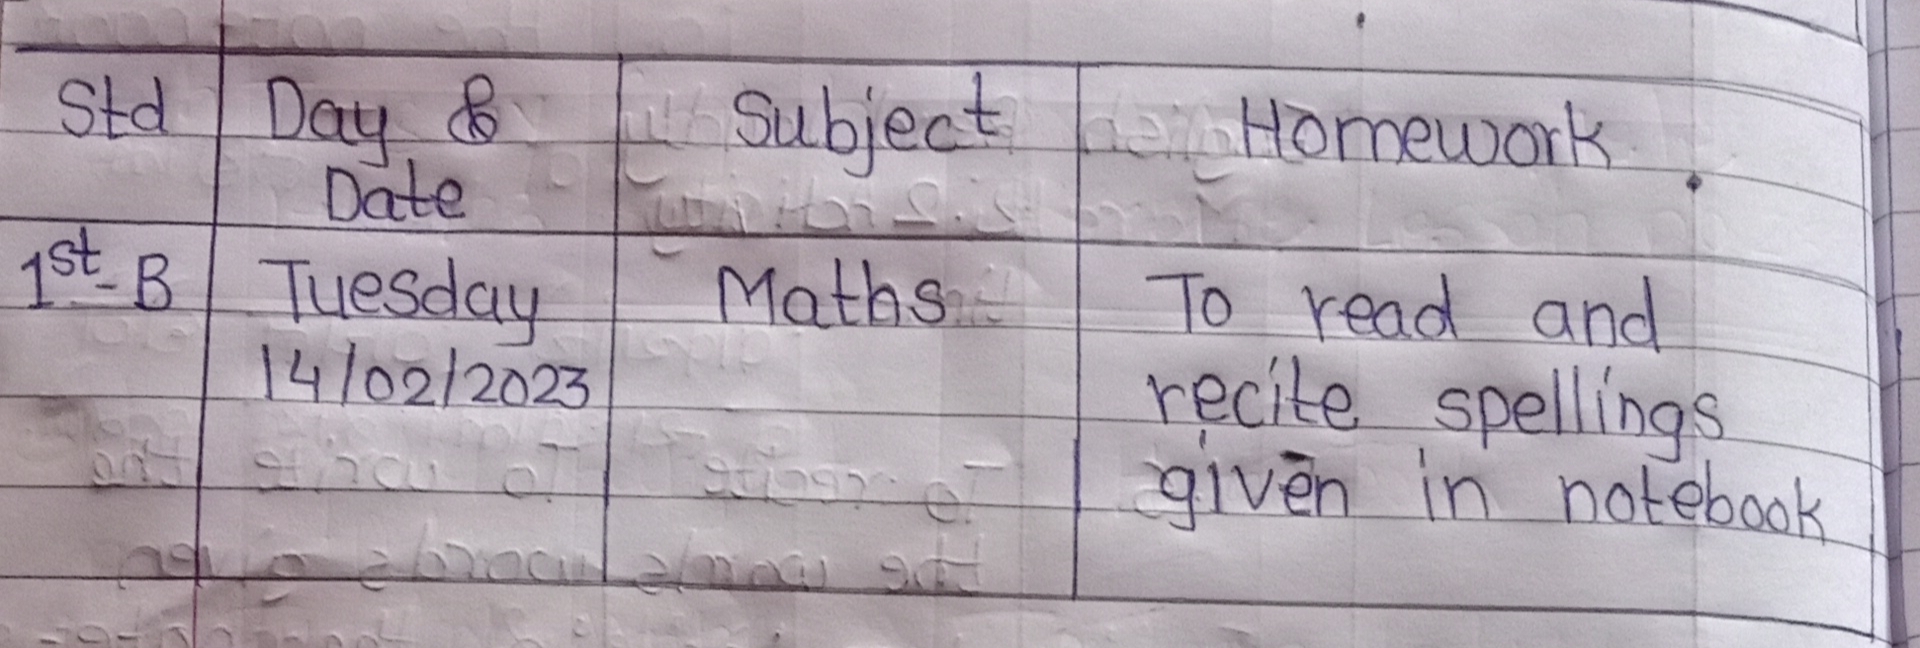 Std Day & Subject Homework
Date
1st-B Tuesday Maths To read and
14/02/2023 recite spellings
given in notebook